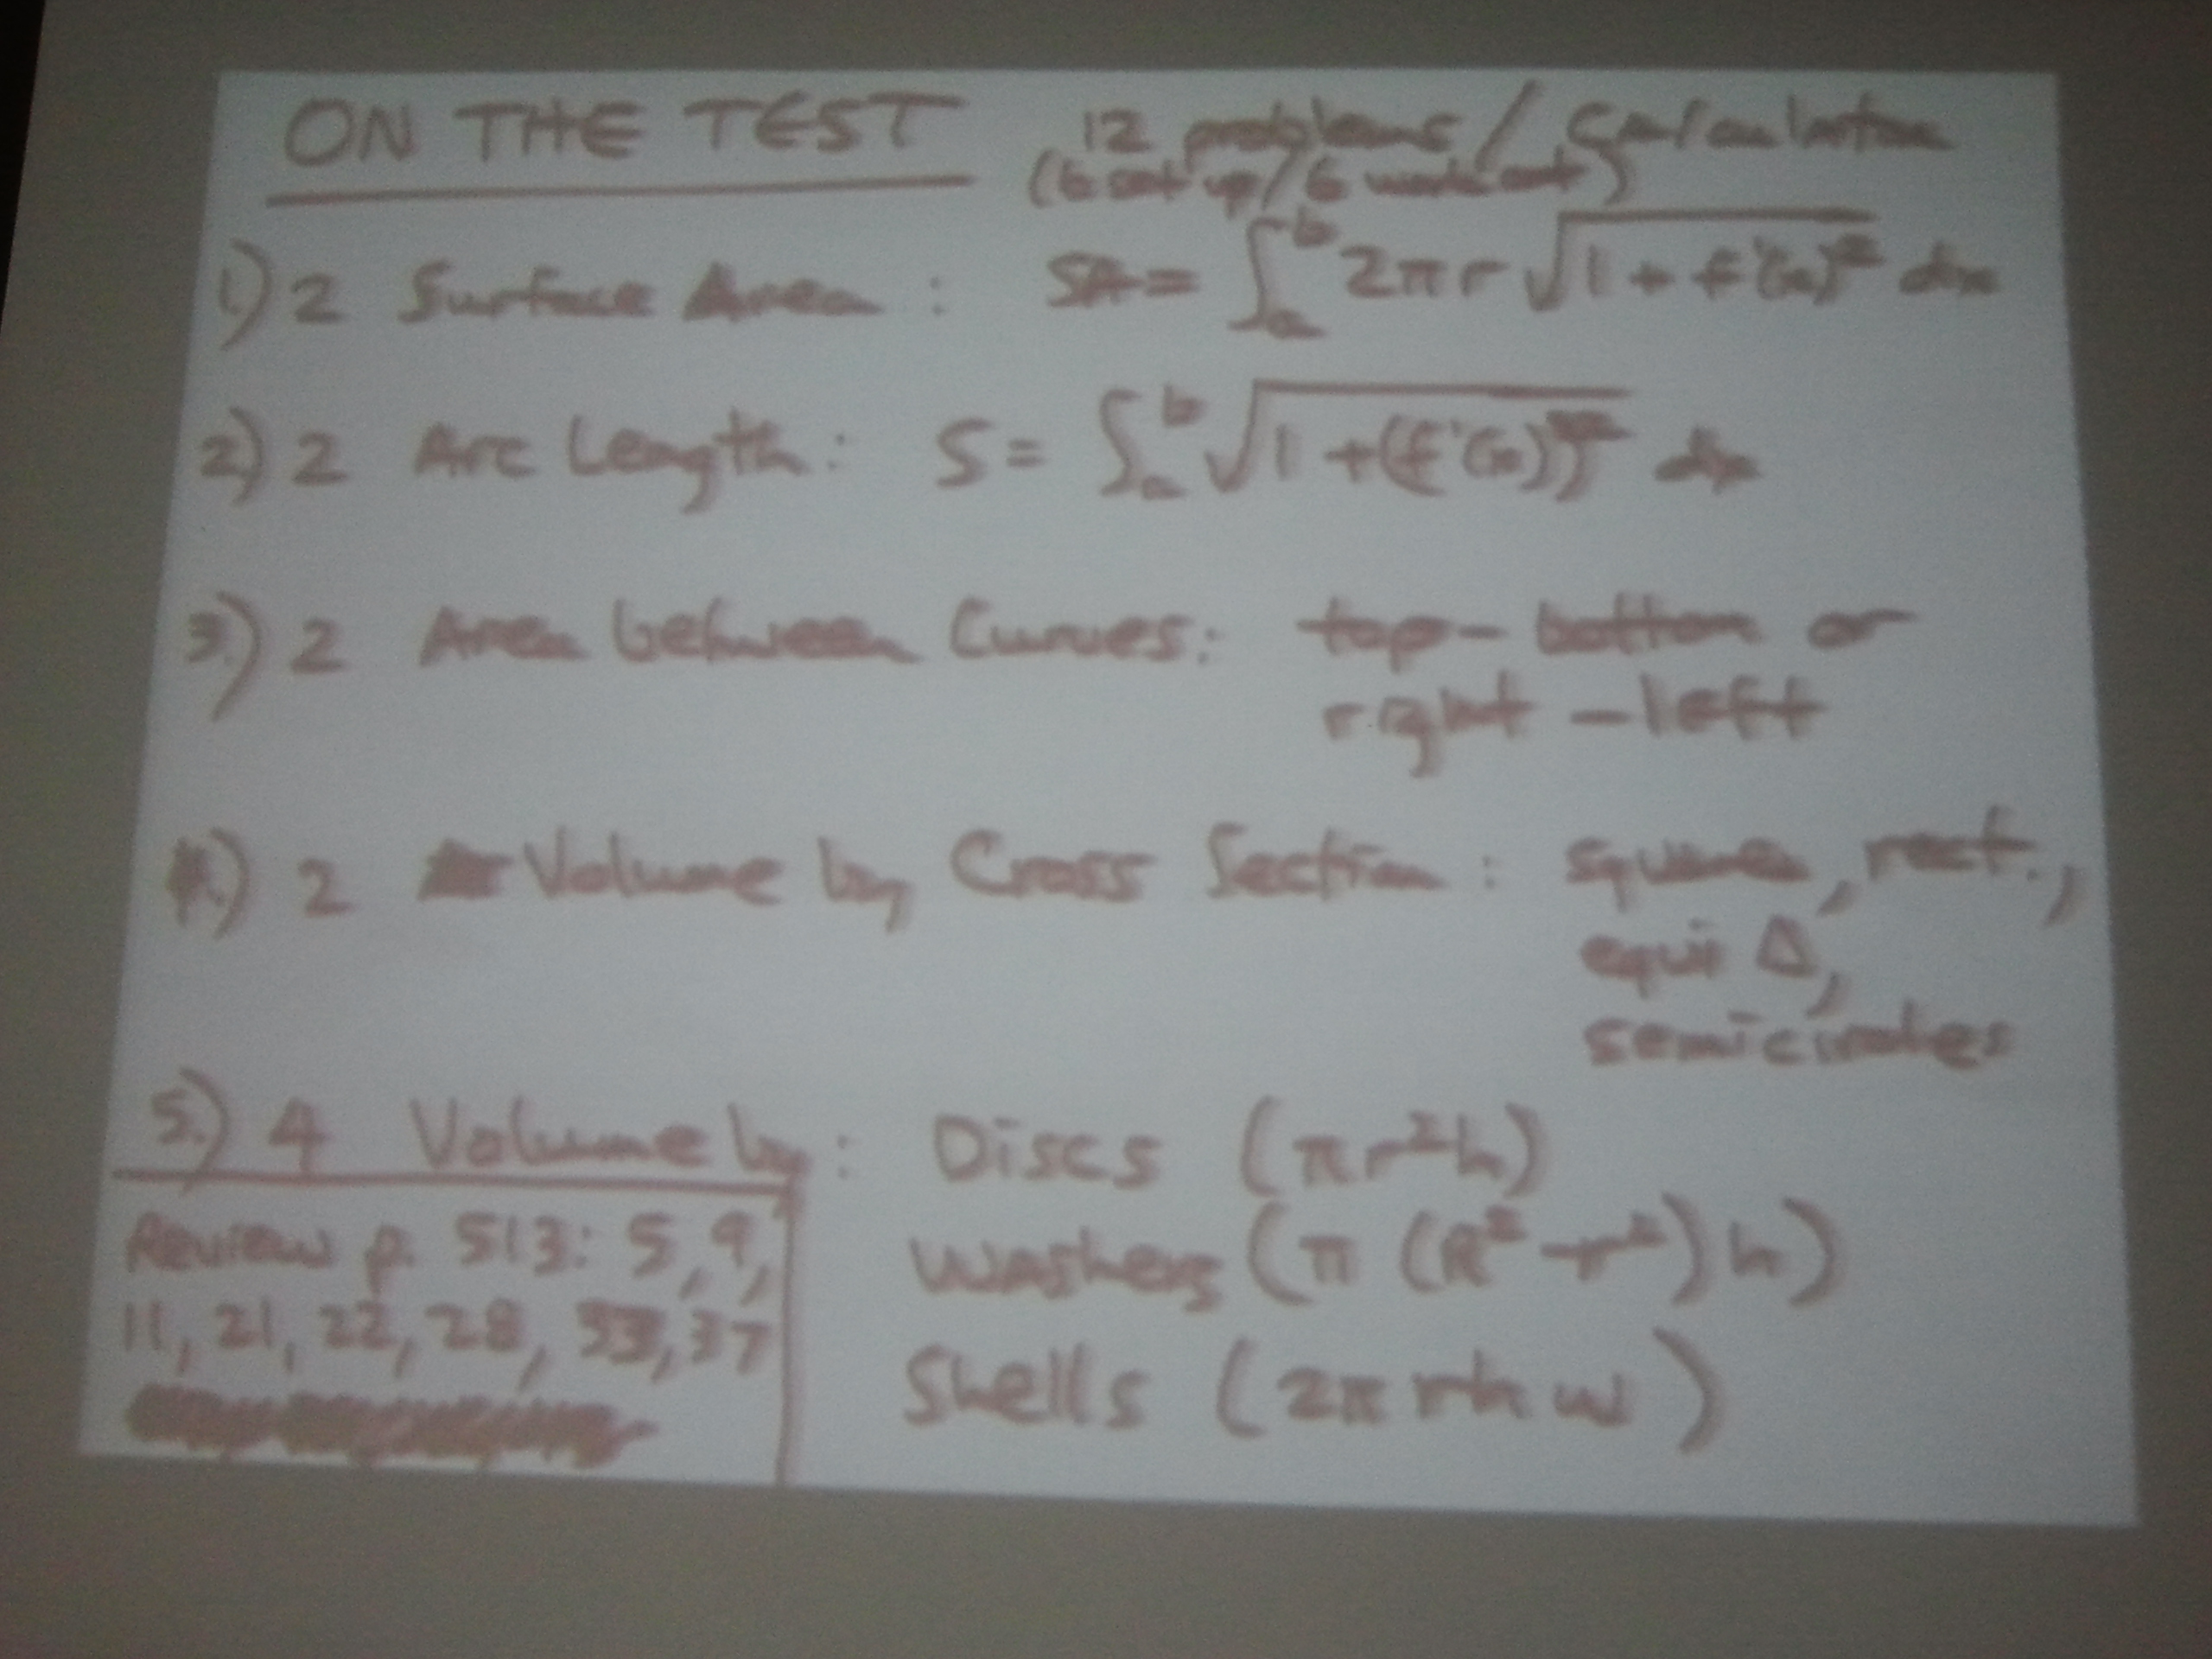 ON THE TEST 12 problems / Calculator
(6 set up / 6 work out)
1.) 2 Surface Area : SA = ∫_a^b 2πr √(1 + f'(x)²) dx
2.) 2 Arc Length : S = ∫_a^b √(1 + (f'(x))²) dx
3.) 2 Area between Curves : top - bottom or
right - left
4.) 2 Volume by Cross Section : square, rect.,
equi Δ,
semicircles
5.) 4 Volume by : Discs (πr²h)
Washers (π (R² - r²) h)
Shells (2πrhw)
Review p. 513: 5, 9,
11, 21, 22, 28, 33, 37